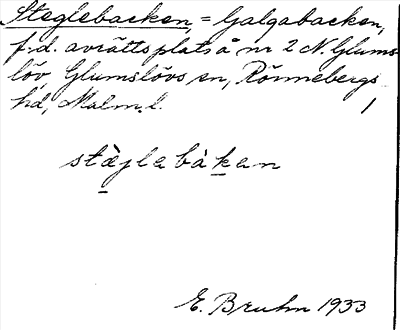 Steglebacken, = Galgabacken,
f. d. avrättsplats å nr 2 N. Glums-
löv, Glumslövs sn, Rönnebergs
hd, Malm. l. 1
stæ̀jlebàken
E. Bruhn 1933